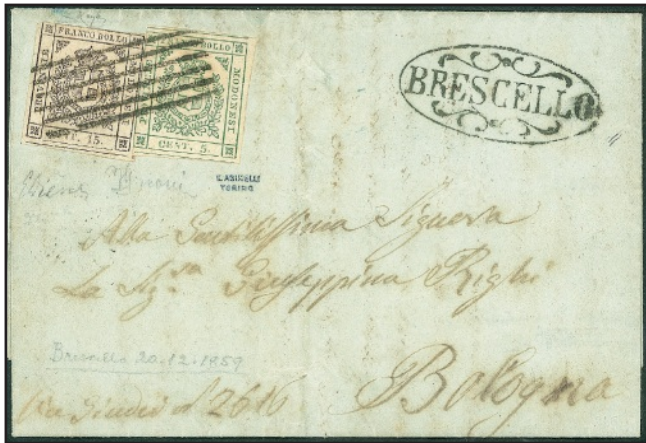 FRANCO BOLLO
PROVINCIE
CENT. 15.
BOLLO
MODONESI
CENT. 5
BRESCELLO
Diena
E. ASINELLI
TORINO
Alla Gentilissima Signora
La Sig.ra Giuseppina Righi
Brescello 20.12.1859
Via n 2616
Bologna